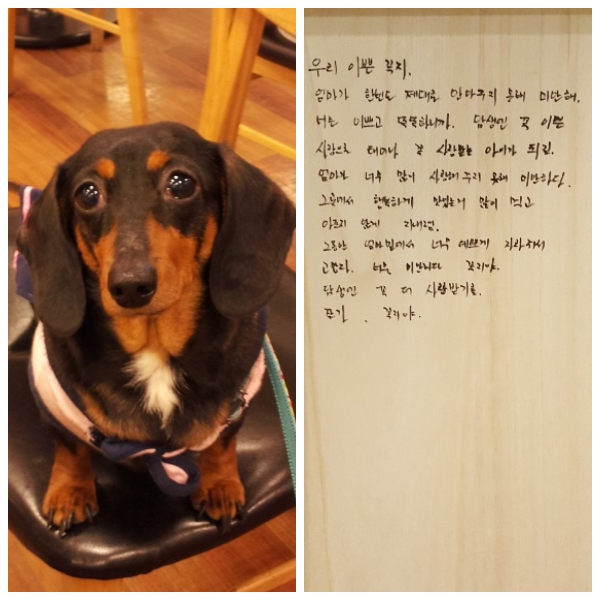 우리 이쁜 꼭지.
엄마가 한번도 제대로 안아주지 못해 미안해.
너는 이쁘고 똑똑하니까. 담생엔 꼭 이쁜
사람으로 태어나 꼭 사랑받는 아이가 되린.
엄마가 너무 많이 사랑해주지 못해 미안하다.
그곳에서 행복하게 맛있는거 많이 먹고
아프지 않게 지내렴.
그동안 엄마밑에서 너무 예쁘게 자라줘서
고맙다. 꼭지야.
담생엔 꼭 더 사랑받기를.
잘가. 꼭지야.